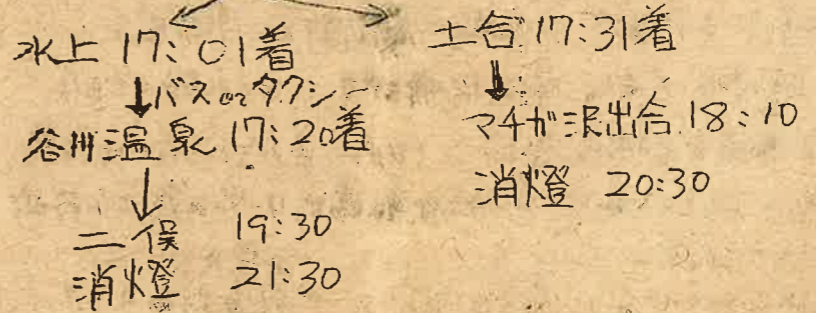 水上 17:01着
↓バス or タクシー
谷川温泉 17:20着
↓
二俣 19:30
消燈 21:30
土合 17:31着
↓
マチガ沢出合 18:10
消燈 20:30